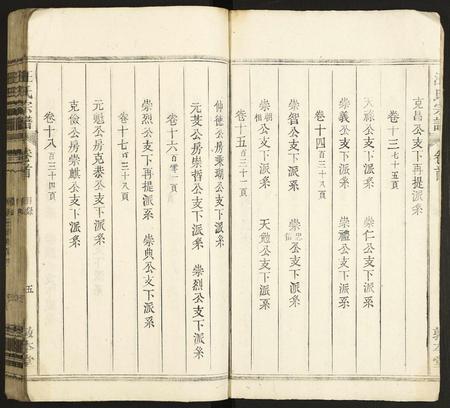 克昌公支下再提派系
卷十三 七十五頁
天祿公支下派系 崇仁公支下派系
崇義公支下派系 崇禮公支下派系
卷十四 百三十八頁
崇智公支下派系 崇忠公支下派系
崇朝公支下派系 天勉公支下派系
卷十五 百三十一頁
伸德公房秉瑚公支下派系
元芝公房崇哲公支下派系 崇烈公支下派系
卷十六 百零一頁
崇烈公支下再提派系 崇典公支下派系
卷十七 百二十八頁
元魁公房克泰公支下派系
克儉公房崇麒公支下派系
卷十八 百三十四頁
汪氏宗譜 卷首 目錄 五 敦本堂